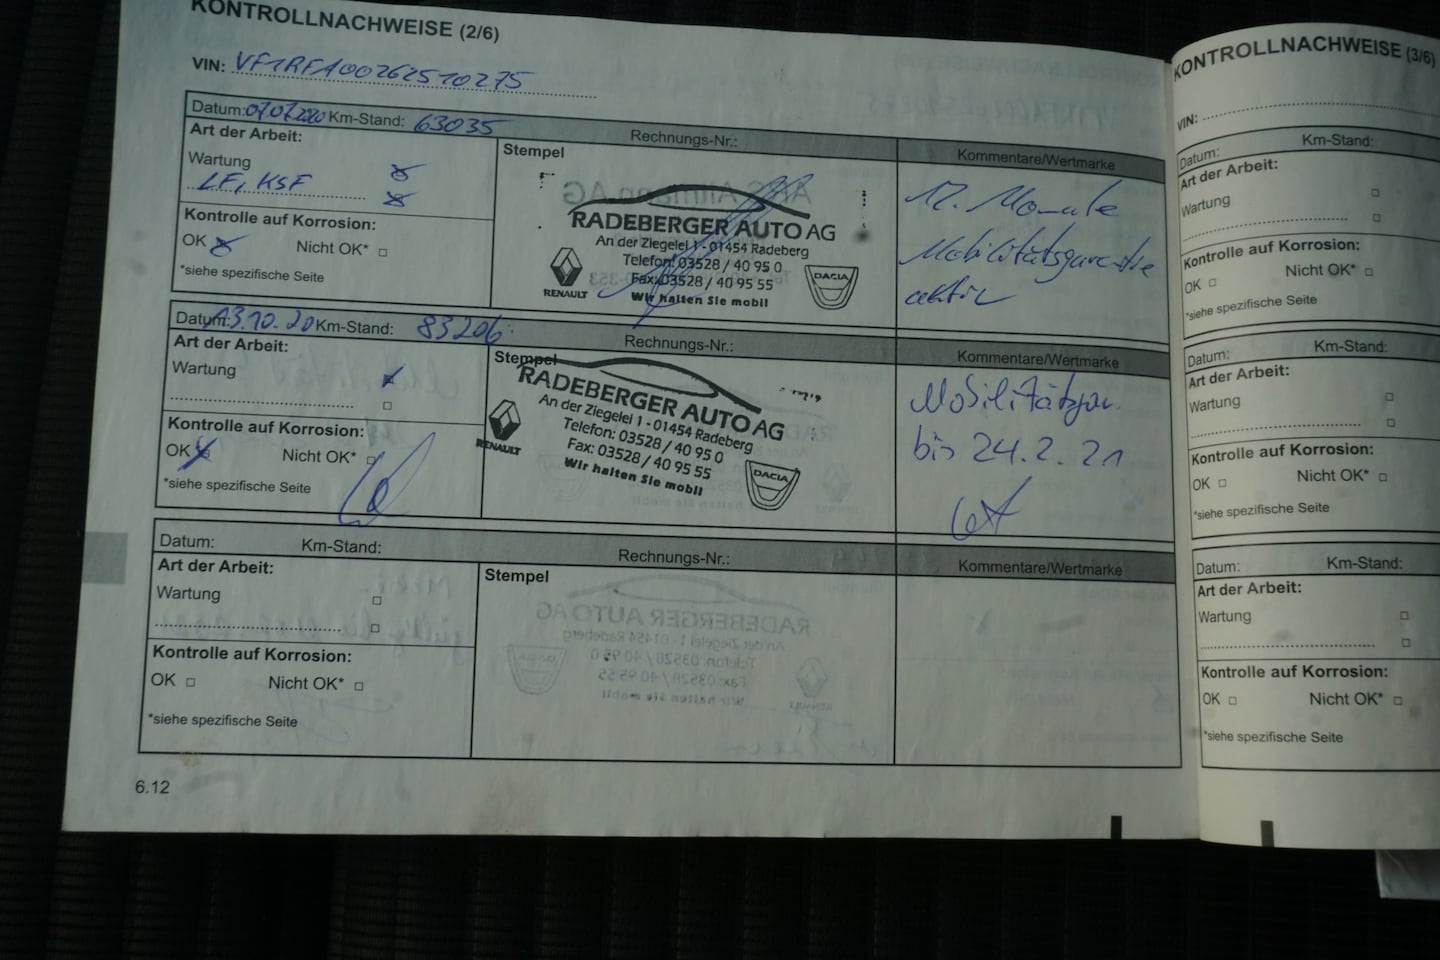 KONTROLLNACHWEISE (2/6)
VIN: VF1RFA00262510275
Datum: 07.07.2020 Km-Stand: 63035 Rechnungs-Nr.:
Art der Arbeit:
Wartung
LF, KSF
Kontrolle auf Korrosion:
OK Nicht OK*
*siehe spezifische Seite
Stempel
RADEBERGER AUTO AG
An der Ziegelei 1 - 01454 Radeberg
Telefon: 03528 / 40 95 0
Fax: 03528 / 40 95 55
Wir halten Sie mobil
RENAULT
DACIA
Kommentare/Wertmarke
12. Monate
Mobilitätsgarantie
aktiv
Datum: 13.10.20 Km-Stand: 83206 Rechnungs-Nr.:
Art der Arbeit:
Wartung
Kontrolle auf Korrosion:
OK Nicht OK*
*siehe spezifische Seite
Stempel
RADEBERGER AUTO AG
An der Ziegelei 1 - 01454 Radeberg
Telefon: 03528 / 40 95 0
Fax: 03528 / 40 95 55
Wir halten Sie mobil
RENAULT
DACIA
Kommentare/Wertmarke
Mobilitätsgar.
bis 24.2.21
Datum: Km-Stand: Rechnungs-Nr.:
Art der Arbeit:
Wartung
Kontrolle auf Korrosion:
OK Nicht OK*
*siehe spezifische Seite
Stempel
Kommentare/Wertmarke
6.12
KONTROLLNACHWEISE (3/6)
VIN:
Datum: Km-Stand:
Art der Arbeit:
Wartung
Kontrolle auf Korrosion:
OK Nicht OK*
*siehe spezifische Seite
Datum: Km-Stand:
Art der Arbeit:
Wartung
Kontrolle auf Korrosion:
OK Nicht OK*
*siehe spezifische Seite
Datum: Km-Stand:
Art der Arbeit:
Wartung
Kontrolle auf Korrosion:
OK Nicht OK*
*siehe spezifische Seite